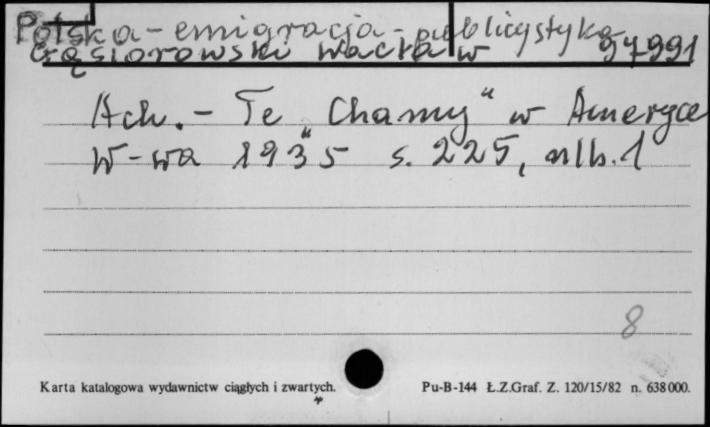 Polska - emigracja - publicystyka
Gąsiorowski Wacław 97991
Ach. - Te „Chamy" w Ameryce
W-wa 1935 s. 225, nlb. 1
8
Karta katalogowa wydawnictw ciągłych i zwartych.
Pu-B-144 Ł.Z.Graf. Z. 120/15/82 n. 638000.